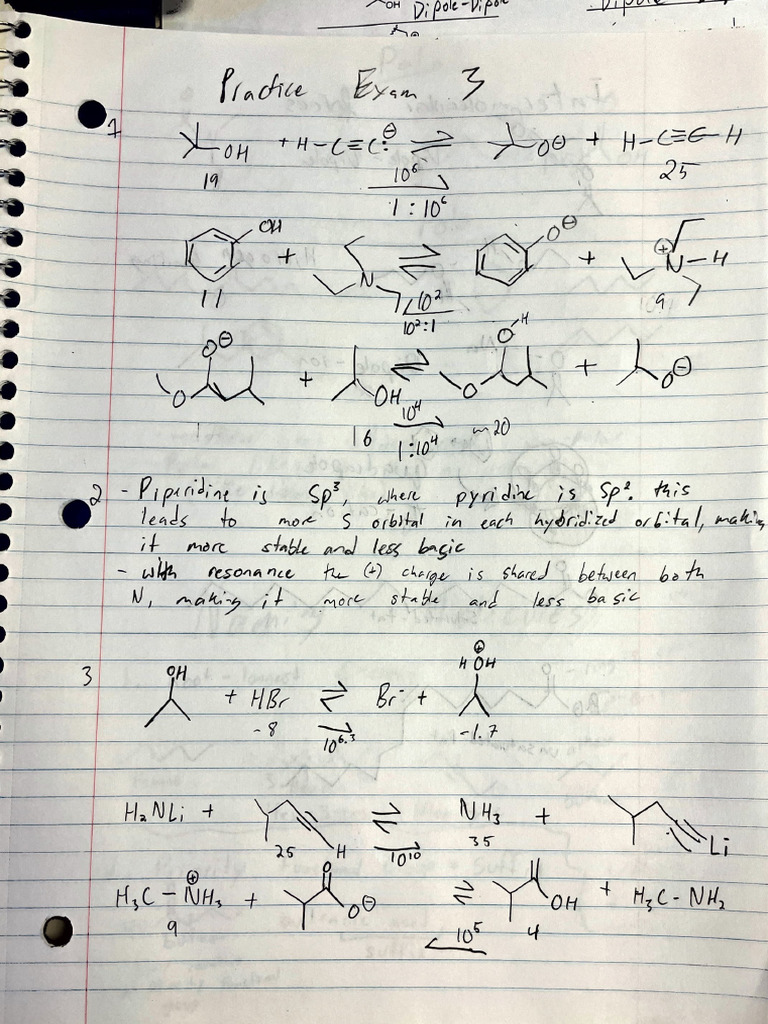 OH Dipole-Dipole
Practice Exam 3
1
OH + H-C≡C:⊖ ⇌ O⊖ + H-C≡C-H
19 10⁶ 25
1 : 10⁶
OH + N ⇌ O⊖ + ⊕N-H
11 10² 9
10²:1
O⊖ O + OH ⇌ O-H O + O⊖
16 10⁴ ~20
1:10⁴
2 - Piperidine is Sp³, where pyridine is Sp². this
leads to more S orbital in each hybridized orbital, making
it more stable and less basic
- with resonance the (+) charge is shared between both
N, making it more stable and less basic
3
OH + HBr ⇌ Br⁻ + H ⊕OH
-8 10^6.3 -1.7
H₂NLi + H ⇌ NH₃ + Li
25 10¹⁰ 35
H₃C-⊕NH₃ + O O⊖ ⇌ OH + H₃C-NH₂
9 10⁵ 4